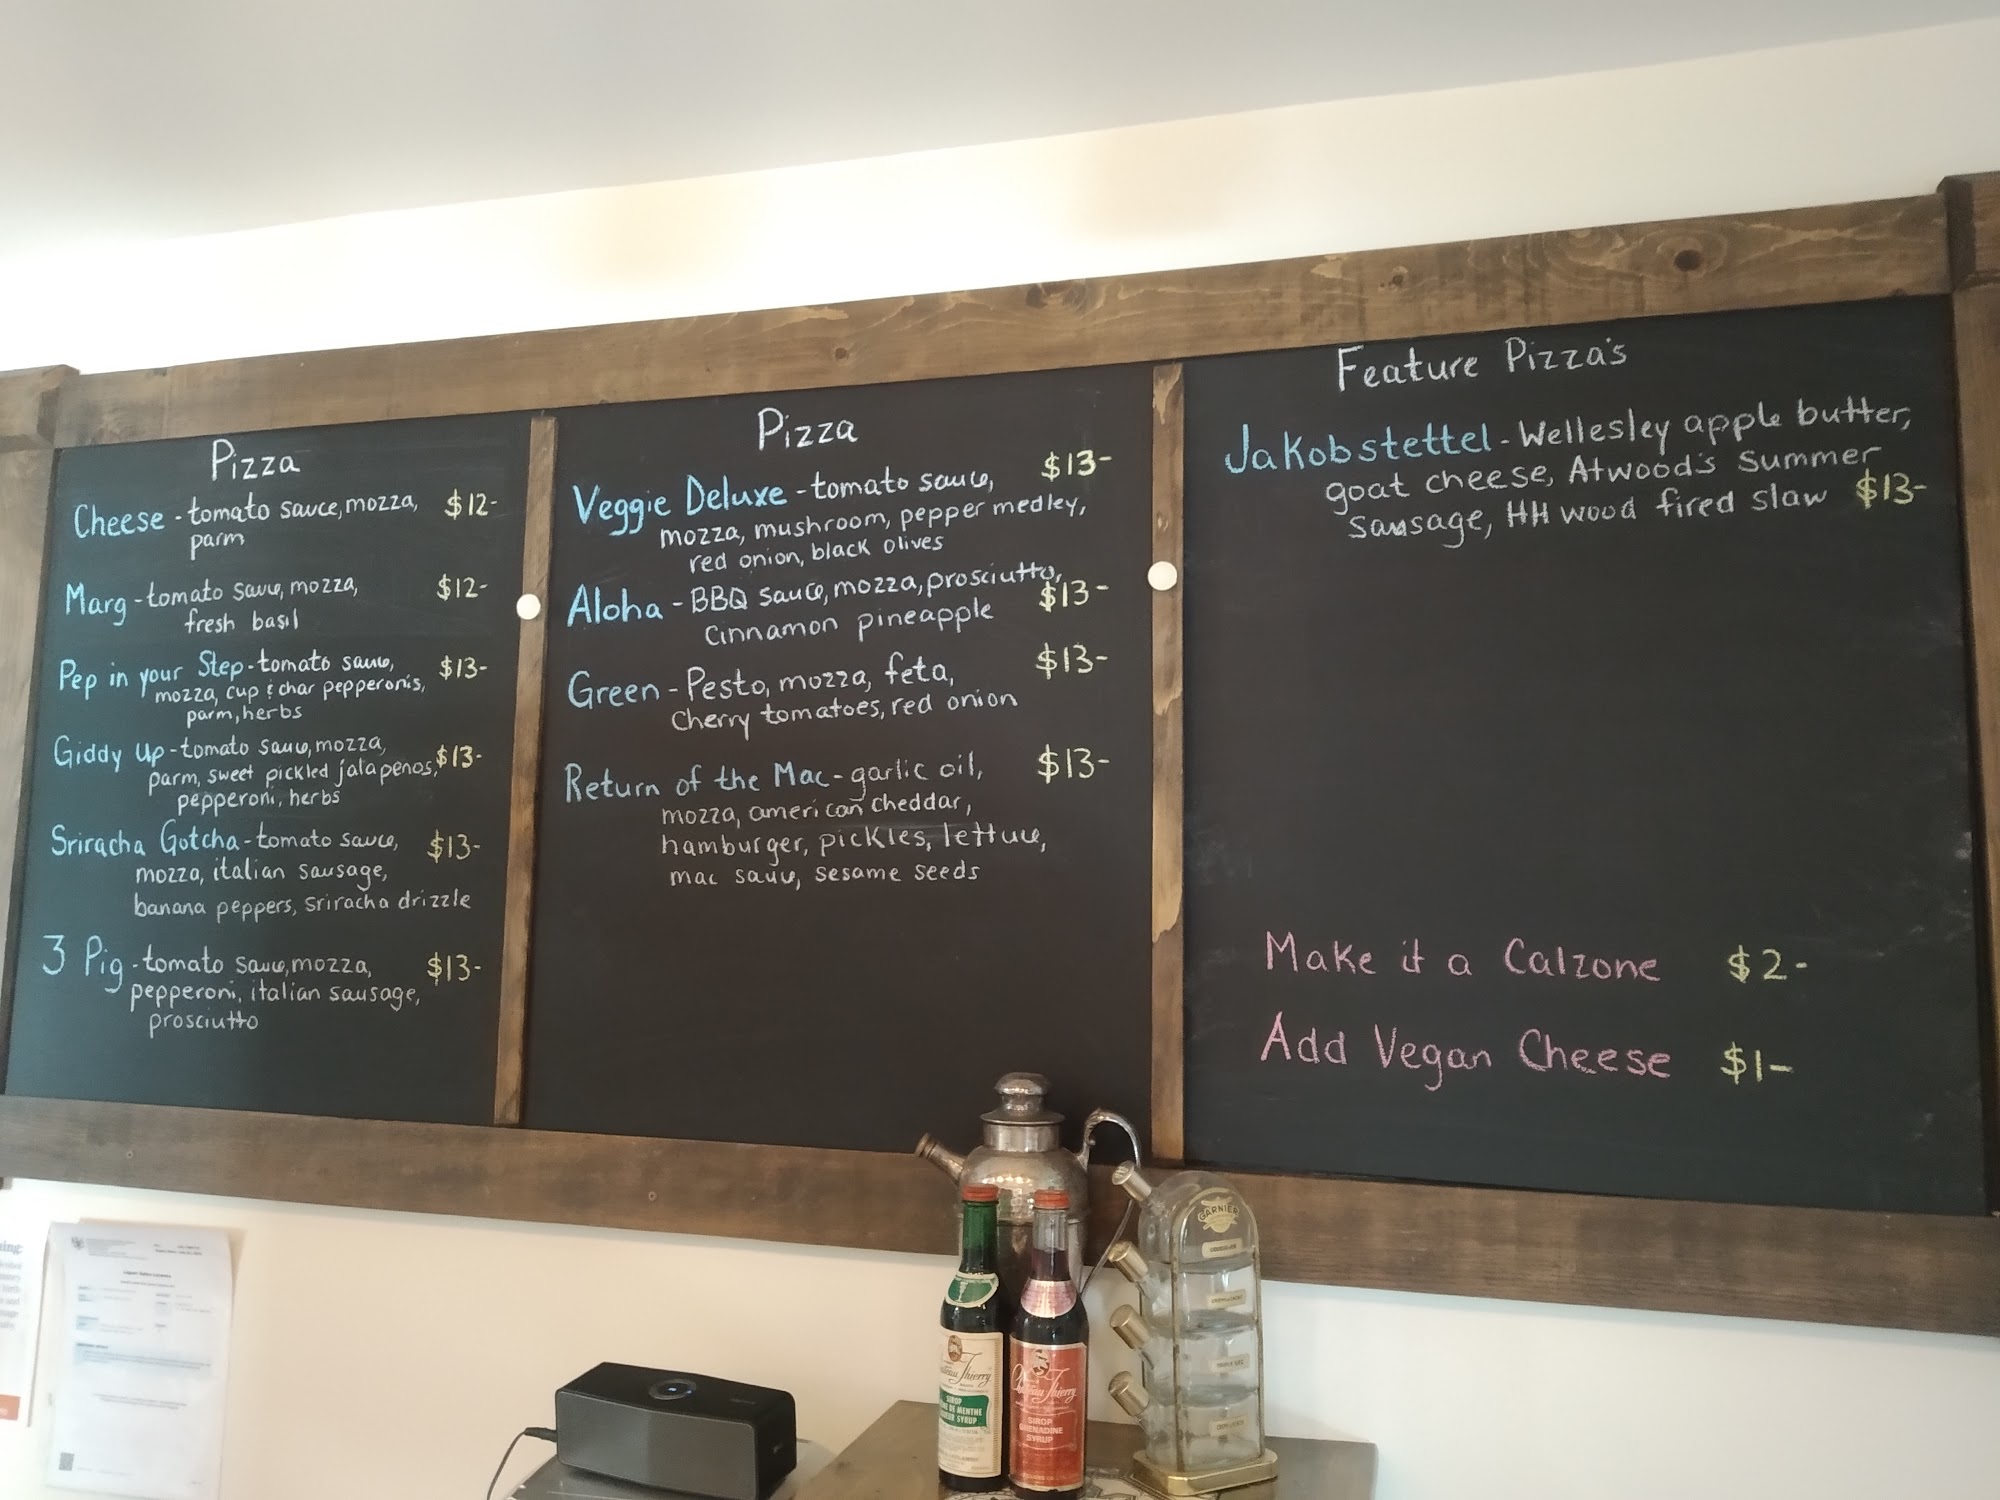 Pizza
Cheese - tomato sauce, mozza, $12-
parm
Marg - tomato sauce, mozza, $12-
fresh basil
Pep in your Step - tomato sauce, $13-
mozza, cup & char pepperonis,
parm, herbs
Giddy Up - tomato sauce, mozza,
parm, sweet pickled jalapenos, $13-
pepperoni, herbs
Sriracha Gotcha - tomato sauce, $13-
mozza, italian sausage,
banana peppers, sriracha drizzle
3 Pig - tomato sauce, mozza, $13-
pepperoni, italian sausage,
prosciutto
Pizza
Veggie Deluxe - tomato sauce, $13-
mozza, mushroom, pepper medley,
red onion, black olives
Aloha - BBQ sauce, mozza, prosciutto,
cinnamon pineapple $13-
Green - Pesto, mozza, feta, $13-
cherry tomatoes, red onion
Return of the Mac - garlic oil, $13-
mozza, american cheddar,
hamburger, pickles, lettuce,
mac sauce, sesame seeds
Feature Pizza's
Jakobstettel - Wellesley apple butter,
goat cheese, Atwood's Summer
Sausage, HH wood fired slaw $13-
Make it a Calzone $2-
Add Vegan Cheese $1-
GARNIER
Thierry
SIROP
DE MENTHE
SYRUP
Thierry
SIROP
GRENADINE
SYRUP